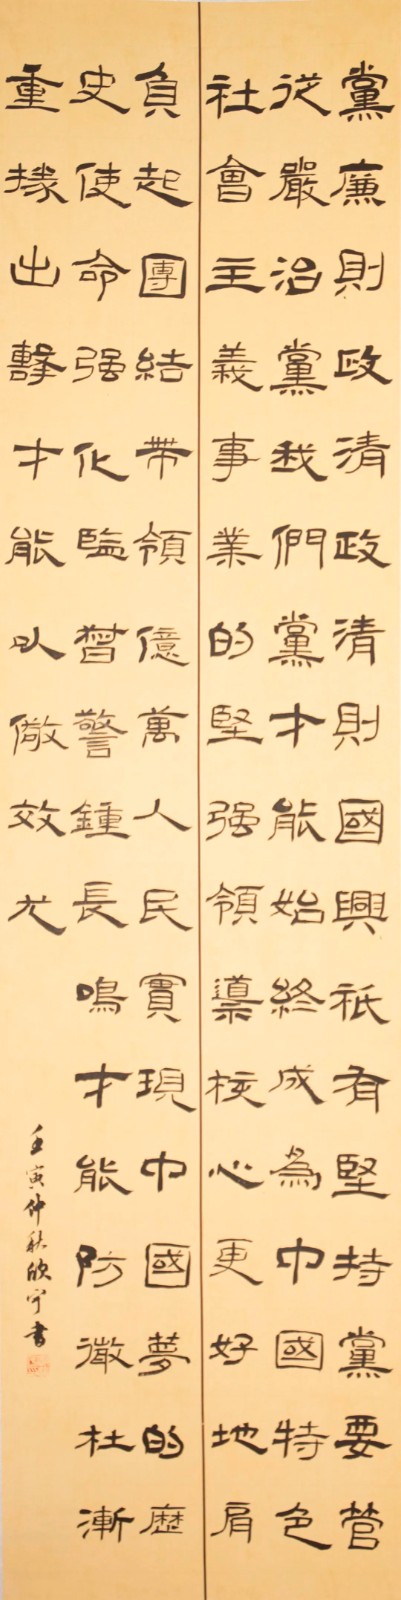 黨廉則政清政清則國興祇有堅持黨要管
從嚴治黨我們黨才能始終成為中國特色
社會主義事業的堅强領導核心更好地肩
負起團結帶領億萬人民實現中國夢的歷
史使命强化監督警鍾長鳴才能防微杜漸
重出擊才能以儆效尤
壬寅仲秋欣宁書